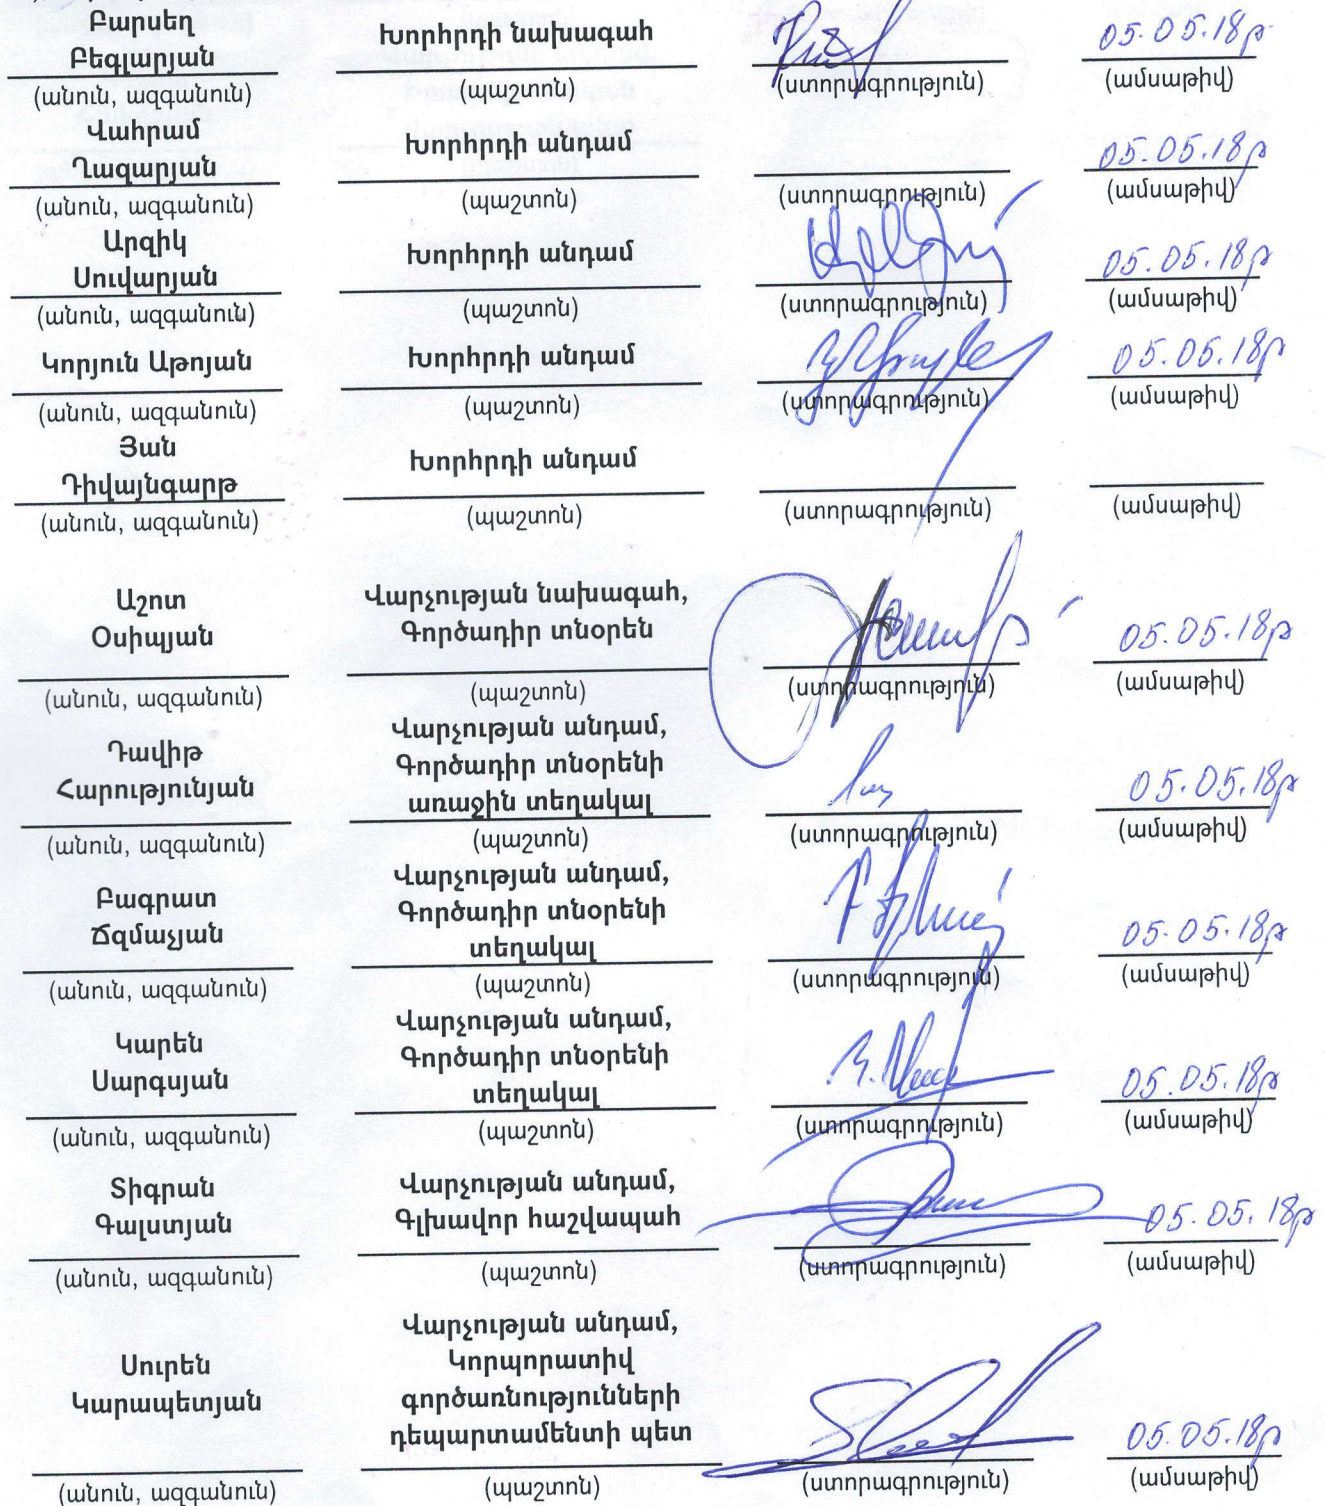 Բարսեղ
Բեգլարյան
Խորհրդի նախագահ
05.05.18թ
(անուն, ազգանուն) (պաշտոն) (ստորագրություն) (ամսաթիվ)
Վահրամ
Ղազարյան
Խորհրդի անդամ
05.05.18թ
(անուն, ազգանուն) (պաշտոն) (ստորագրություն) (ամսաթիվ)
Արզիկ
Սուվարյան
Խորհրդի անդամ
05.05.18թ
(անուն, ազգանուն) (պաշտոն) (ստորագրություն) (ամսաթիվ)
Կորյուն Աթոյան
Խորհրդի անդամ
05.05.18թ
(անուն, ազգանուն) (պաշտոն) (ստորագրություն) (ամսաթիվ)
Յան
Դիվայնգարթ
Խորհրդի անդամ
(անուն, ազգանուն) (պաշտոն) (ստորագրություն) (ամսաթիվ)
Աշոտ
Օսիպյան
Վարչության նախագահ,
Գործադիր տնօրեն
05.05.18թ
(անուն, ազգանուն) (պաշտոն) (ստորագրություն) (ամսաթիվ)
Դավիթ
Հարությունյան
Վարչության անդամ,
Գործադիր տնօրենի
առաջին տեղակալ
05.05.18թ
(անուն, ազգանուն) (պաշտոն) (ստորագրություն) (ամսաթիվ)
Բագրատ
Ճզմաչյան
Վարչության անդամ,
Գործադիր տնօրենի
տեղակալ
05.05.18թ
(անուն, ազգանուն) (պաշտոն) (ստորագրություն) (ամսաթիվ)
Կարեն
Սարգսյան
Վարչության անդամ,
Գործադիր տնօրենի
տեղակալ
05.05.18թ
(անուն, ազգանուն) (պաշտոն) (ստորագրություն) (ամսաթիվ)
Տիգրան
Գալստյան
Վարչության անդամ,
Գլխավոր հաշվապահ
05.05.18թ
(անուն, ազգանուն) (պաշտոն) (ստորագրություն) (ամսաթիվ)
Սուրեն
Կարապետյան
Վարչության անդամ,
Կորպորատիվ
գործառնությունների
դեպարտամենտի պետ
05.05.18թ
(անուն, ազգանուն) (պաշտոն) (ստորագրություն) (ամսաթիվ)